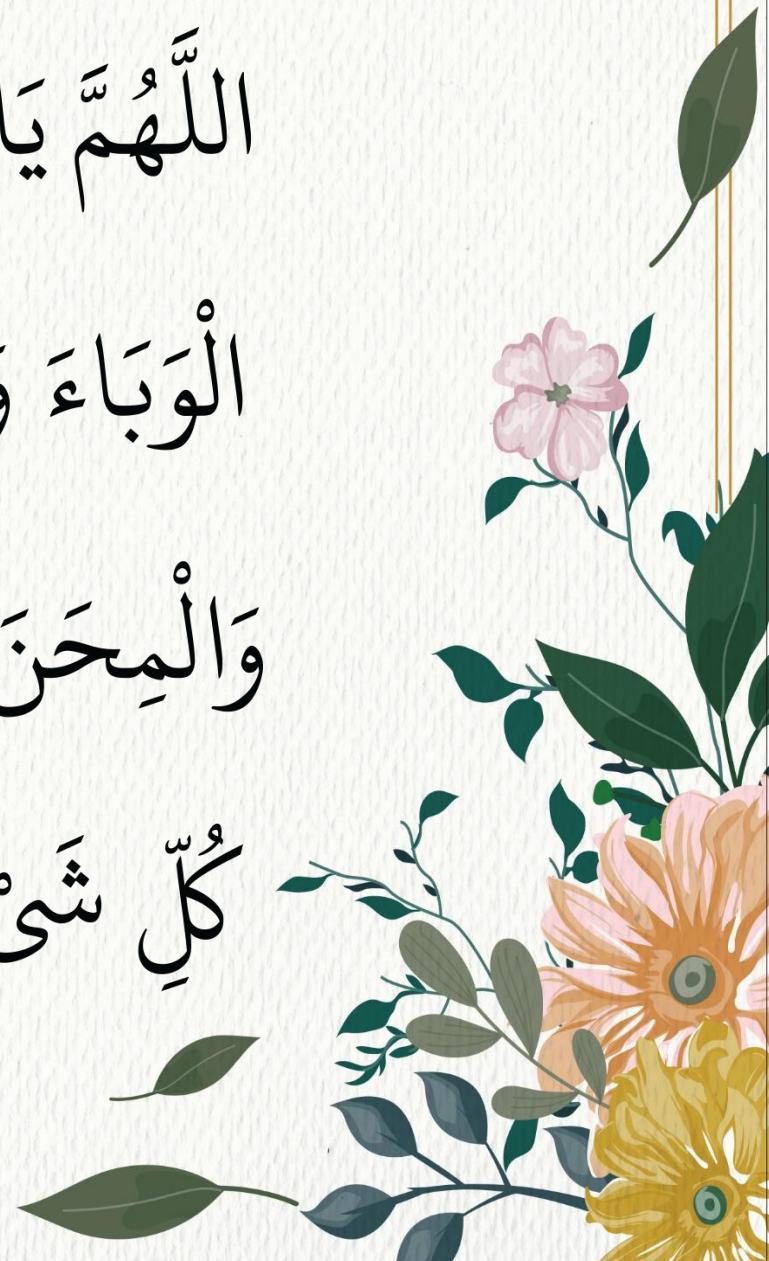 اللَّهُمَّ يَا
الْوَبَاءَ
وَالْمِحَنَ
كُلِّ